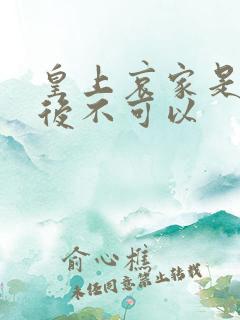 皇上哀家是
後不可以
俞心樵
未经同意禁止转载